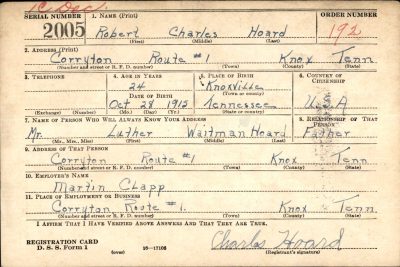 SERIAL NUMBER 1. NAME (Print) ORDER NUMBER
2005 Robert Charles Hoard 192
(First) (Middle) (Last)
2. ADDRESS (Print)
Corryton Route #1 Knox Tenn
(Number and street or R. F. D. number) (Town) (County) (State)
3. TELEPHONE 4. AGE IN YEARS 5. PLACE OF BIRTH 6. COUNTRY OF CITIZENSHIP
24 Knoxville
(Town or county)
DATE OF BIRTH
Oct 28 1915 Tennessee U.S.A
(Exchange) (Number) (Mo.) (Day) (Yr.) (State or country)
7. NAME OF PERSON WHO WILL ALWAYS KNOW YOUR ADDRESS 8. RELATIONSHIP OF THAT PERSON
Mr. Luther Waitman Hoard Father
(Mr., Mrs., Miss) (First) (Middle) (Last)
9. ADDRESS OF THAT PERSON
Corryton Route #1 Knox Tenn
(Number and street or R. F. D. number) (Town) (County) (State)
10. EMPLOYER'S NAME
Martin Clapp
11. PLACE OF EMPLOYMENT OR BUSINESS
Corryton Route #1. Knox Tenn.
(Number and street or R. F. D. number) (Town) (County) (State)
I AFFIRM THAT I HAVE VERIFIED ABOVE ANSWERS AND THAT THEY ARE TRUE.
REGISTRATION CARD
D. S. S. Form 1 (over) 16—17105 Charles Hoard
(Registrant's signature)